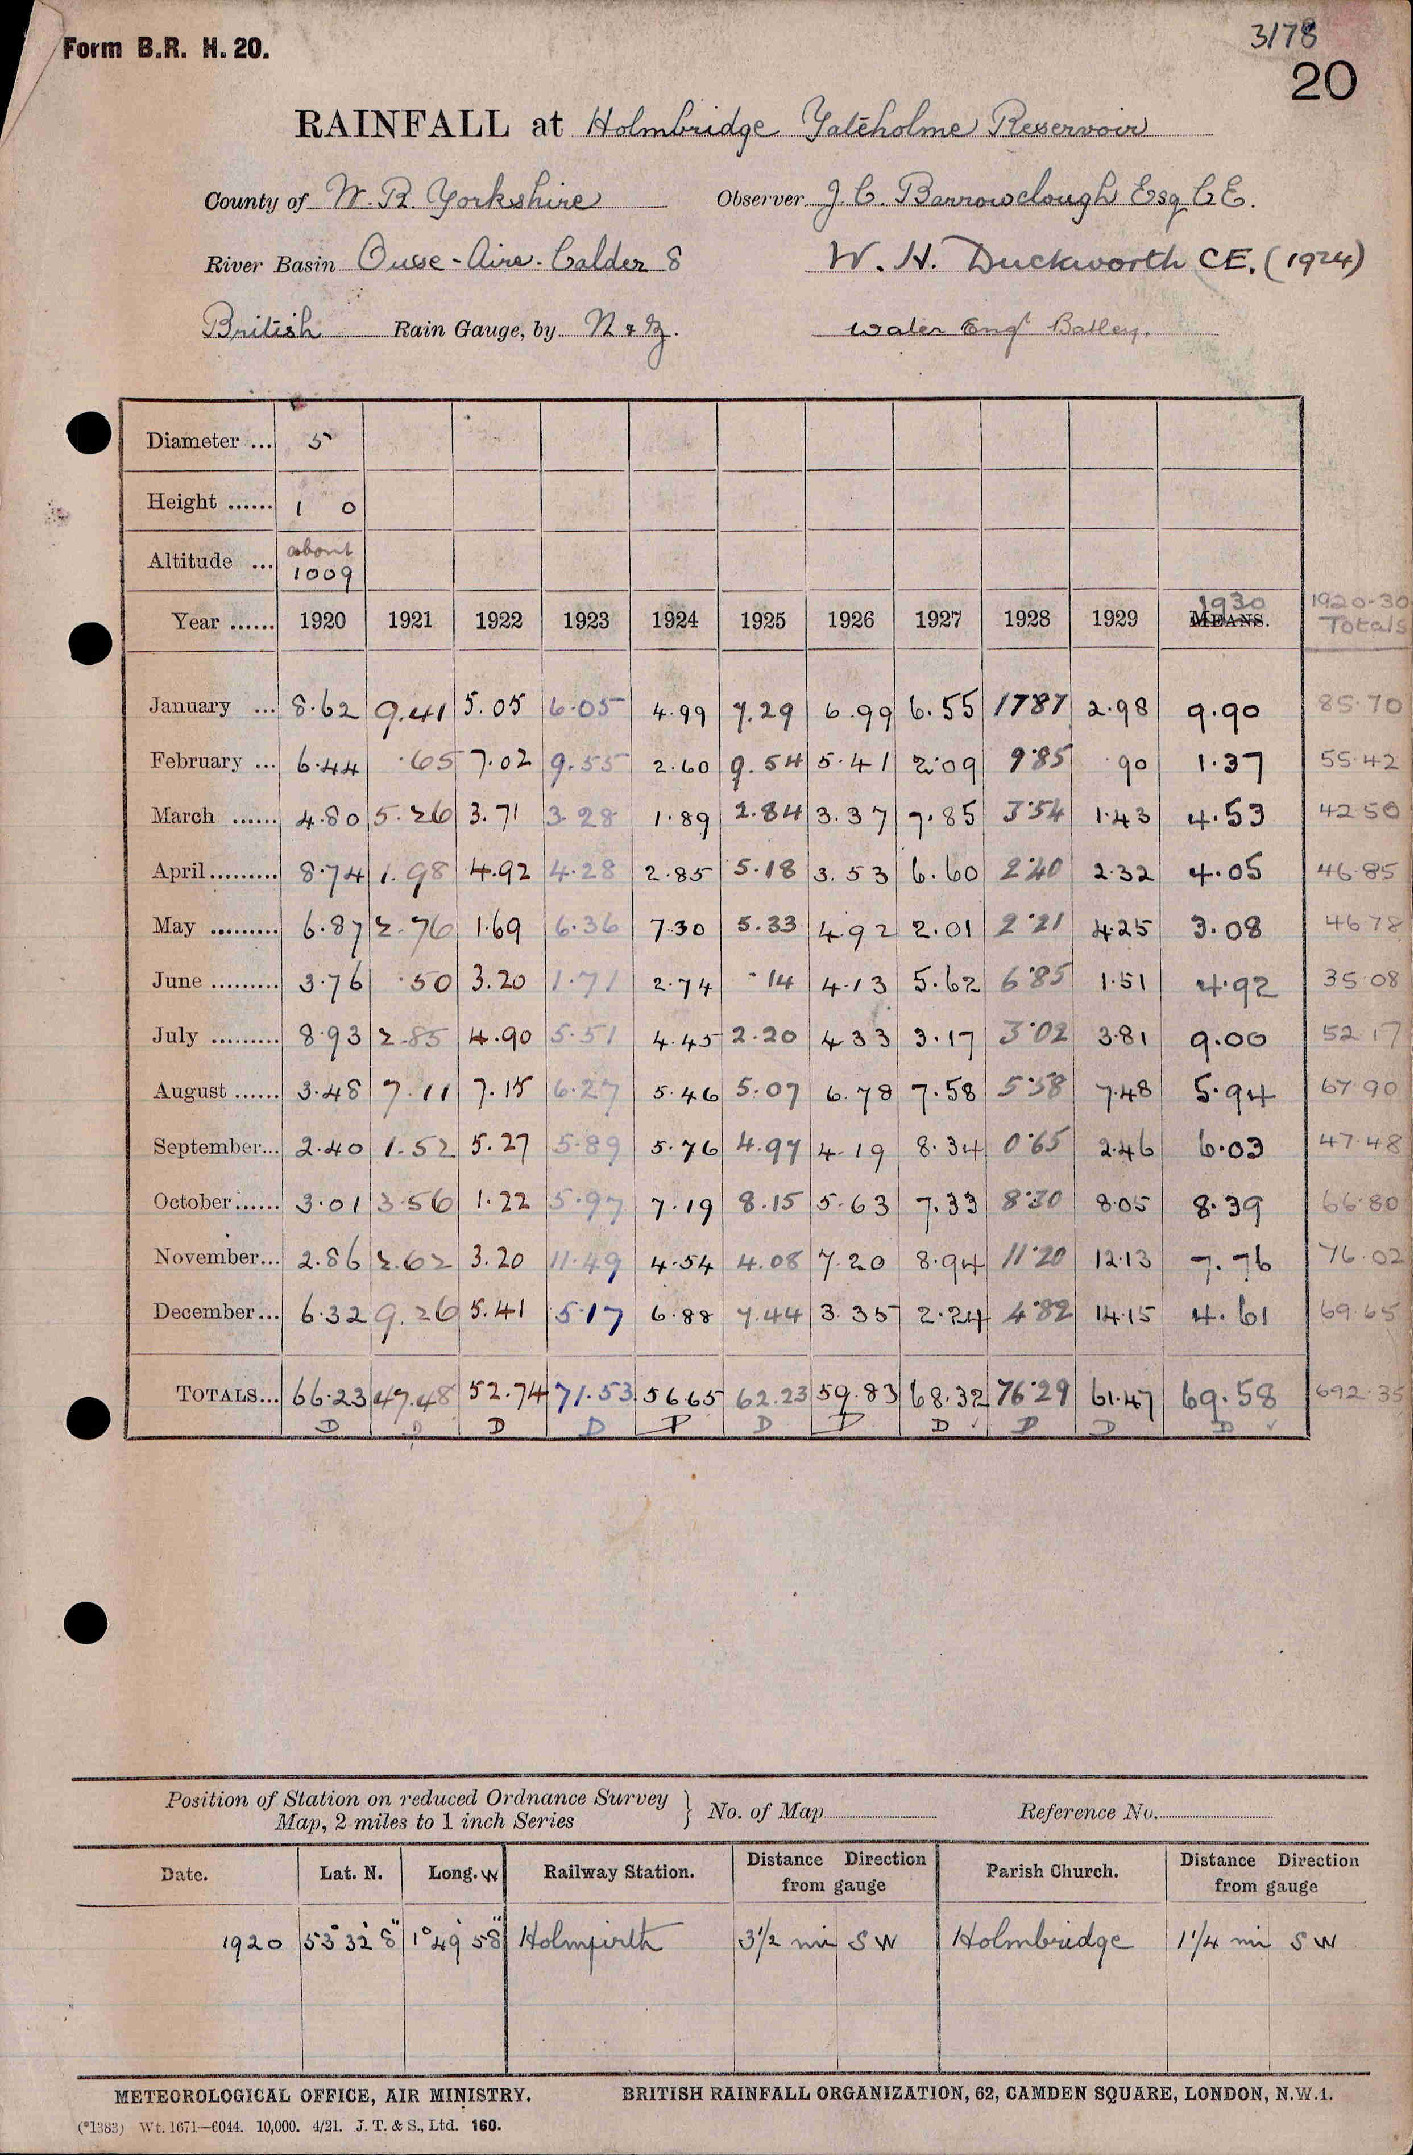 Form B.R. H. 20.
3178
20
RAINFALL at Holmbridge Yateholme Reservoir
County of W. R. Yorkshire Observer J. C. Barrowclough Esq C E.
River Basin Ouse - Aire - Calder 8 W. H. Duckworth CE. (1924)
British Rain Gauge, by N & Z. Water Engr Batley.
Diameter ... 5
Height ...... 1 0
Altitude ... about 1009
Year ...... 1920 1921 1922 1923 1924 1925 1926 1927 1928 1929 MEANS. 1930 1920-30 Totals
January ... 8.62 9.41 5.05 6.05 4.99 7.29 6.99 6.55 17.87 2.98 9.90 85.70
February ... 6.44 .65 7.02 9.55 2.60 9.54 5.41 2.09 9.85 .90 1.37 55.42
March ...... 4.80 5.26 3.71 3.28 1.89 2.84 3.37 7.85 3.54 1.43 4.53 42.50
April ......... 8.74 1.98 4.92 4.28 2.85 5.18 3.53 6.60 2.40 2.32 4.05 46.85
May ......... 6.87 2.76 1.69 6.36 7.30 5.33 4.92 2.01 2.21 4.25 3.08 46.78
June ......... 3.76 .50 3.20 1.71 2.74 .14 4.13 5.62 6.85 1.51 4.92 35.08
July ......... 8.93 2.85 4.90 5.51 4.45 2.20 4.33 3.17 3.02 3.81 9.00 52.17
August ...... 3.48 7.11 7.15 6.27 5.46 5.07 6.78 7.58 5.58 7.48 5.94 67.90
September... 2.40 1.52 5.27 5.89 5.76 4.97 4.19 8.34 0.65 2.46 6.03 47.48
October ...... 3.01 3.56 1.22 5.97 7.19 8.15 5.63 7.33 8.30 8.05 8.39 66.80
November... 2.86 2.62 3.20 11.49 4.54 4.08 7.20 8.94 11.20 12.13 7.76 76.02
December... 6.32 9.26 5.41 5.17 6.88 7.44 3.35 2.24 4.82 14.15 4.61 69.65
TOTALS... 66.23 47.48 52.74 71.53 56.65 62.23 59.83 68.32 76.29 61.47 69.58 692.35
D D D D D D D D ✓ D D D ✓
Position of Station on reduced Ordnance Survey Map, 2 miles to 1 inch Series } No. of Map Reference No.
Date. Lat. N. Long. W Railway Station. Distance Direction from gauge Parish Church. Distance Direction from gauge
1920 53° 32' 8" 1° 49' 58" Holmfirth 3 1/2 mi SW Holmbridge 1 1/4 mi SW
METEOROLOGICAL OFFICE, AIR MINISTRY. BRITISH RAINFALL ORGANIZATION, 62, CAMDEN SQUARE, LONDON, N.W.1.
(*1383) Wt. 1671—6044. 10,000. 4/21. J. T. & S., Ltd. 160.